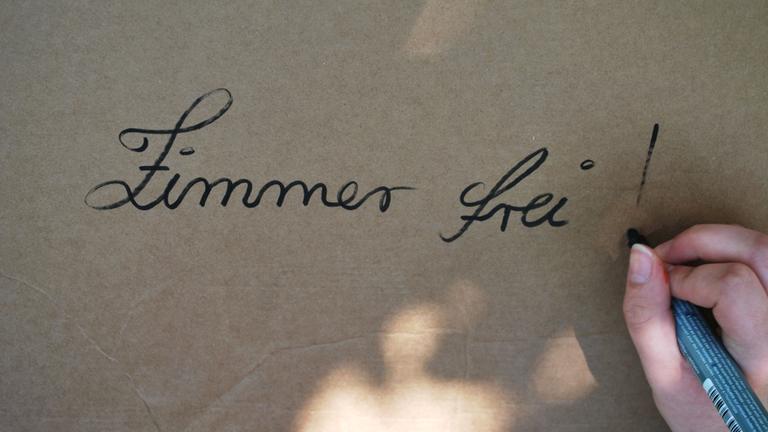 Zimmer frei!